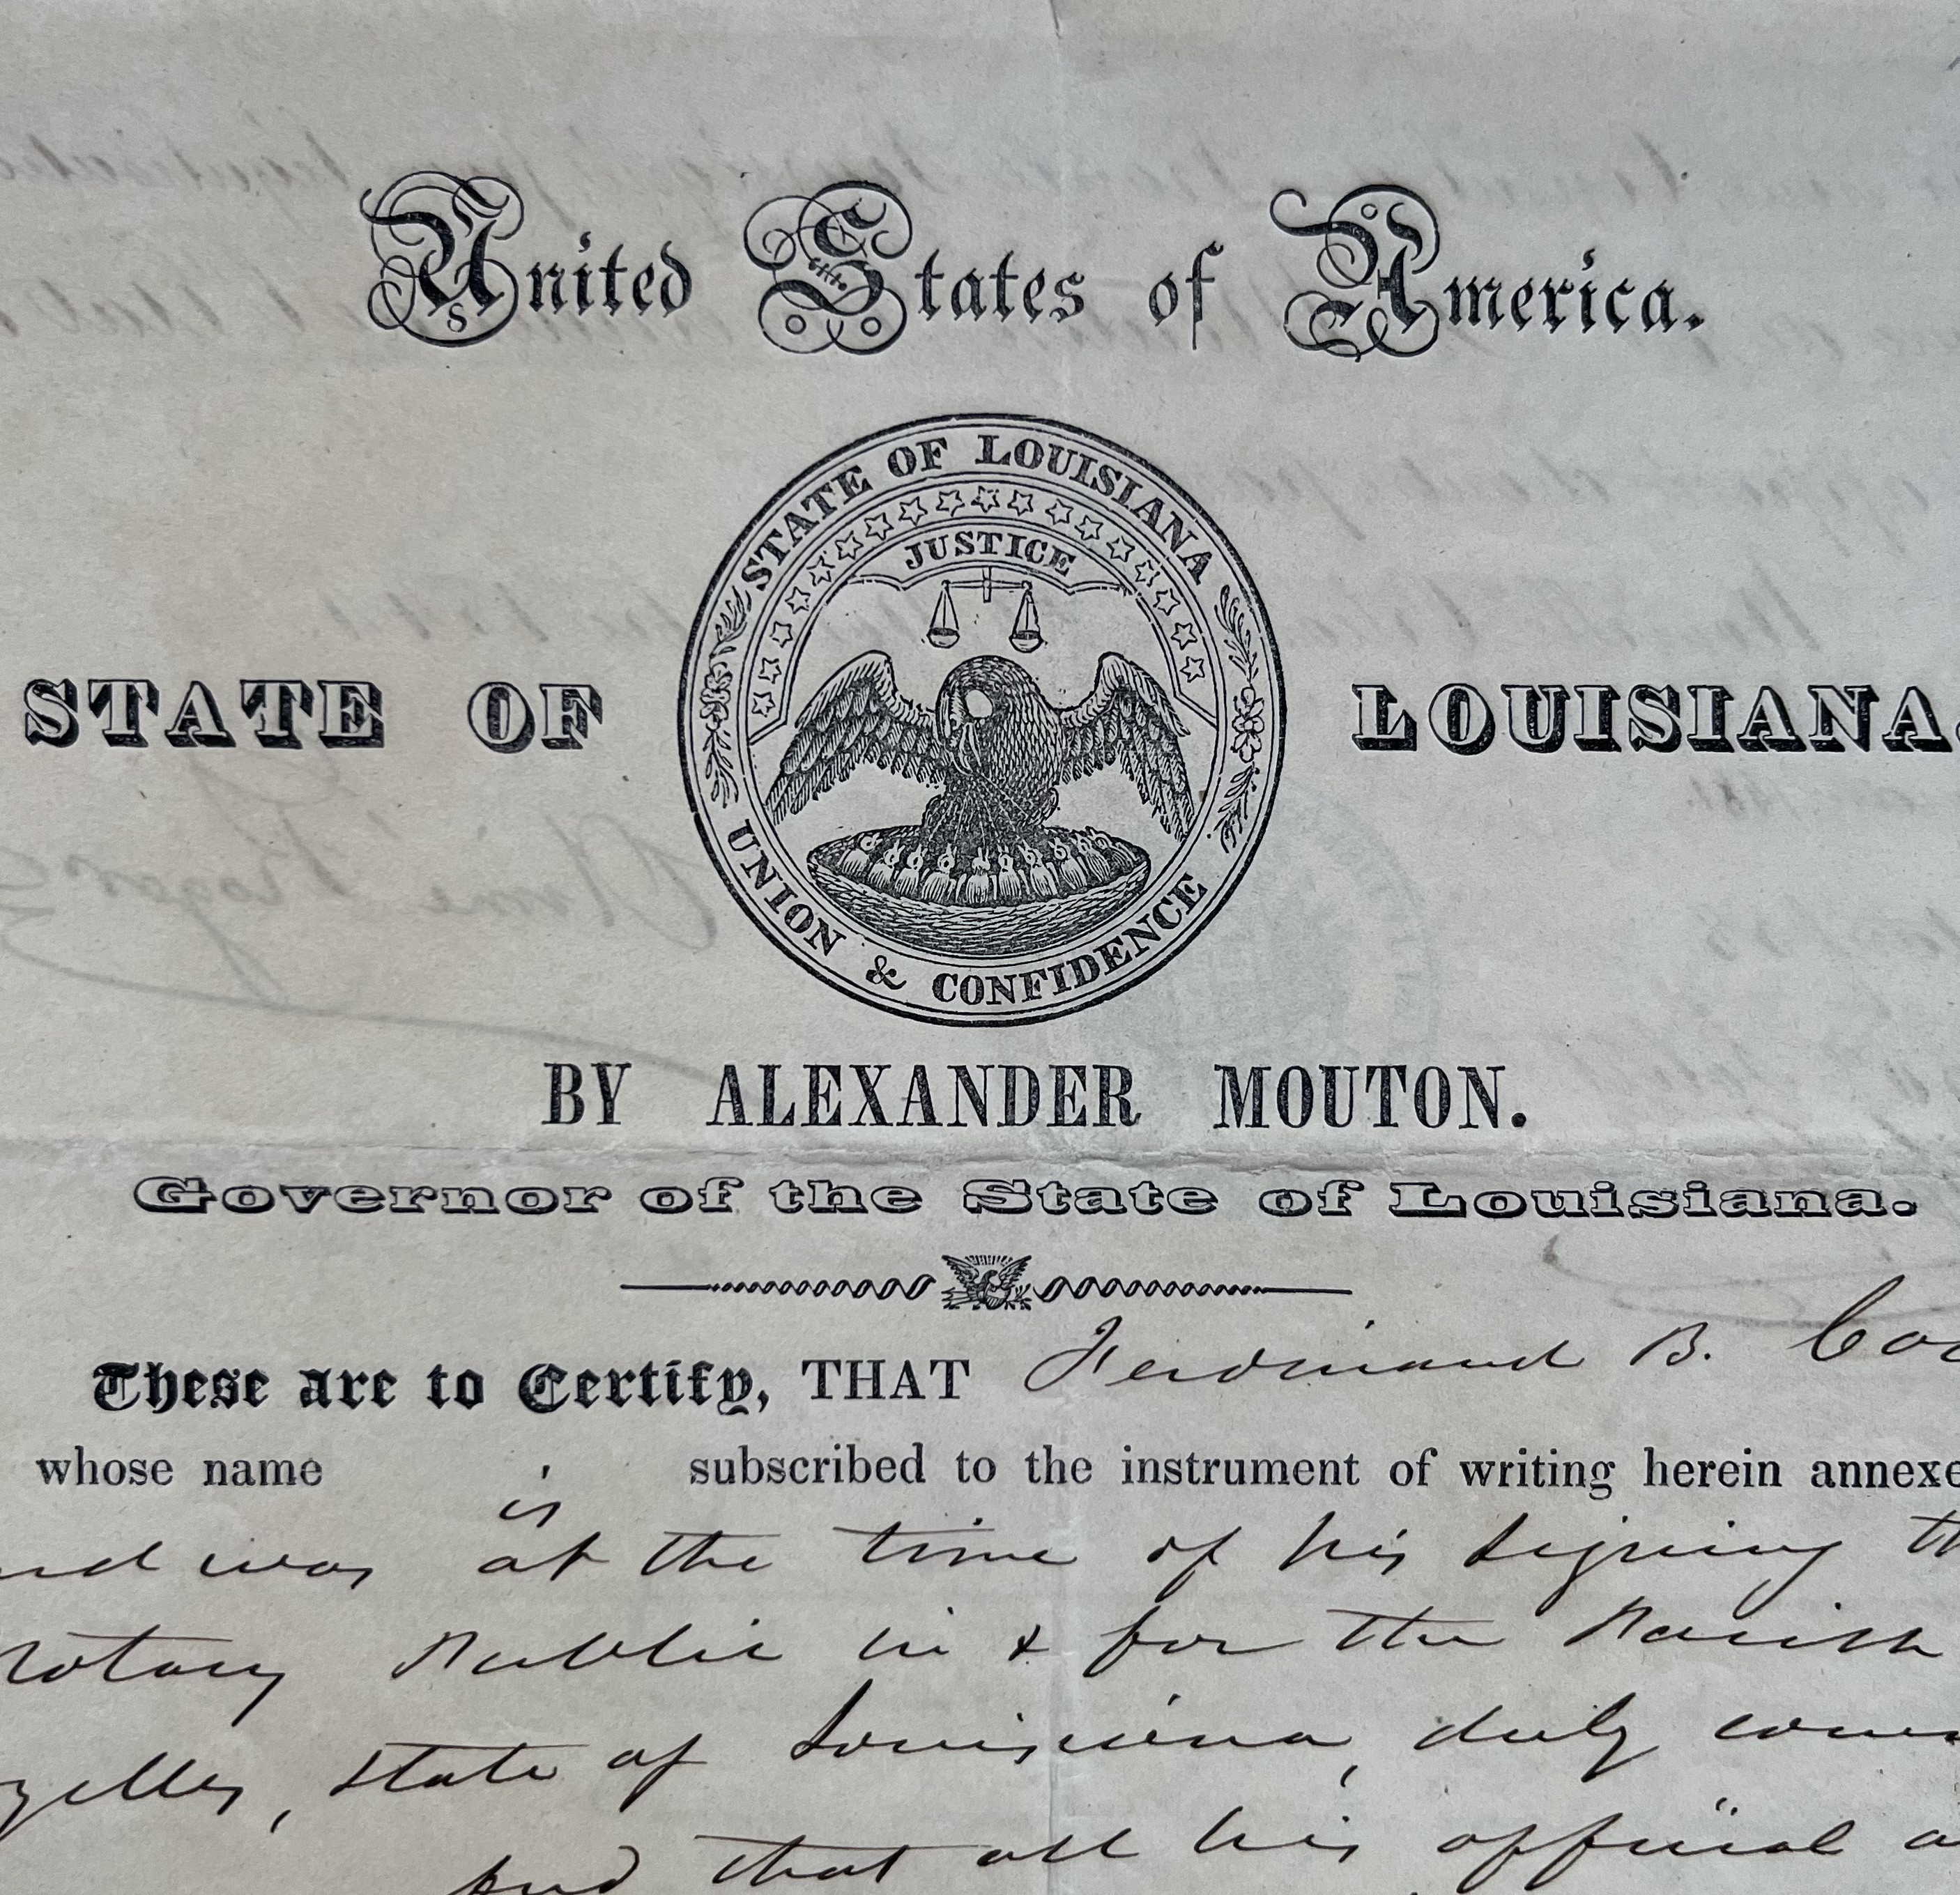 United States of America.
STATE OF LOUISIANA
JUSTICE
UNION & CONFIDENCE
STATE OF LOUISIANA.
BY ALEXANDER MOUTON.
Governor of the State of Louisiana.
These are to Certify, THAT Ferdinand B.
whose name is subscribed to the instrument of writing herein annexe
was at the time of his signing
Notary Public in & for the Parish
State of Louisiana, duly
and that all his official